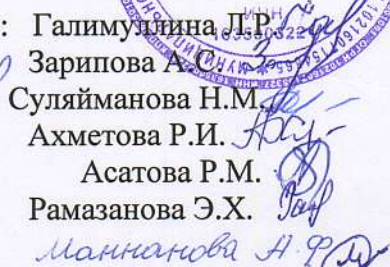 : Галимуллина Л.Р.
Зарипова А.С.
Суляйманова Н.М.
Ахметова Р.И.
Асатова Р.М.
Рамазанова Э.Х.
Маннанова А.Ф.